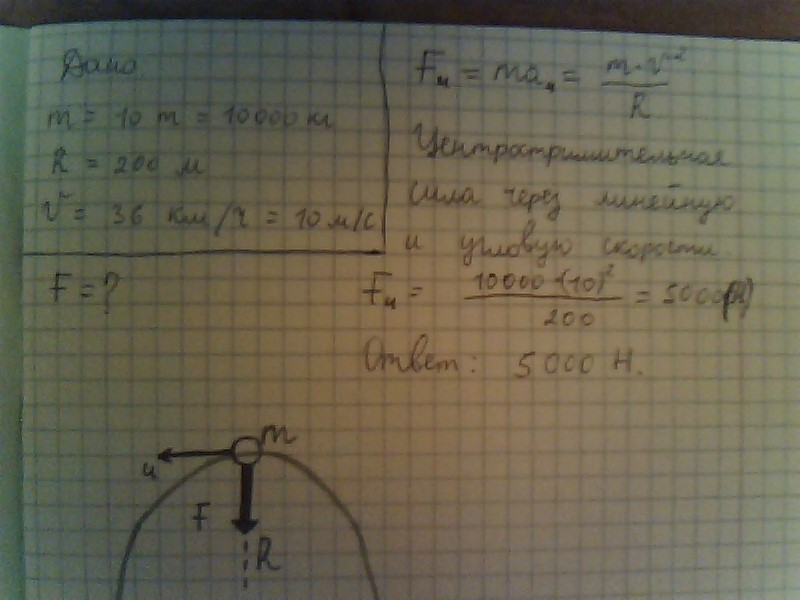 Дано
m = 10 т = 10000 кг
R = 200 м
v = 36 км/ч = 10 м/с
F = ?
Fц = maц = m·v² / R
Центростримительная
сила через линейную
и угловую скорости.
Fц = 10000·(10)² / 200 = 5000(Н)
Ответ: 5000 Н.
m
u
F
R